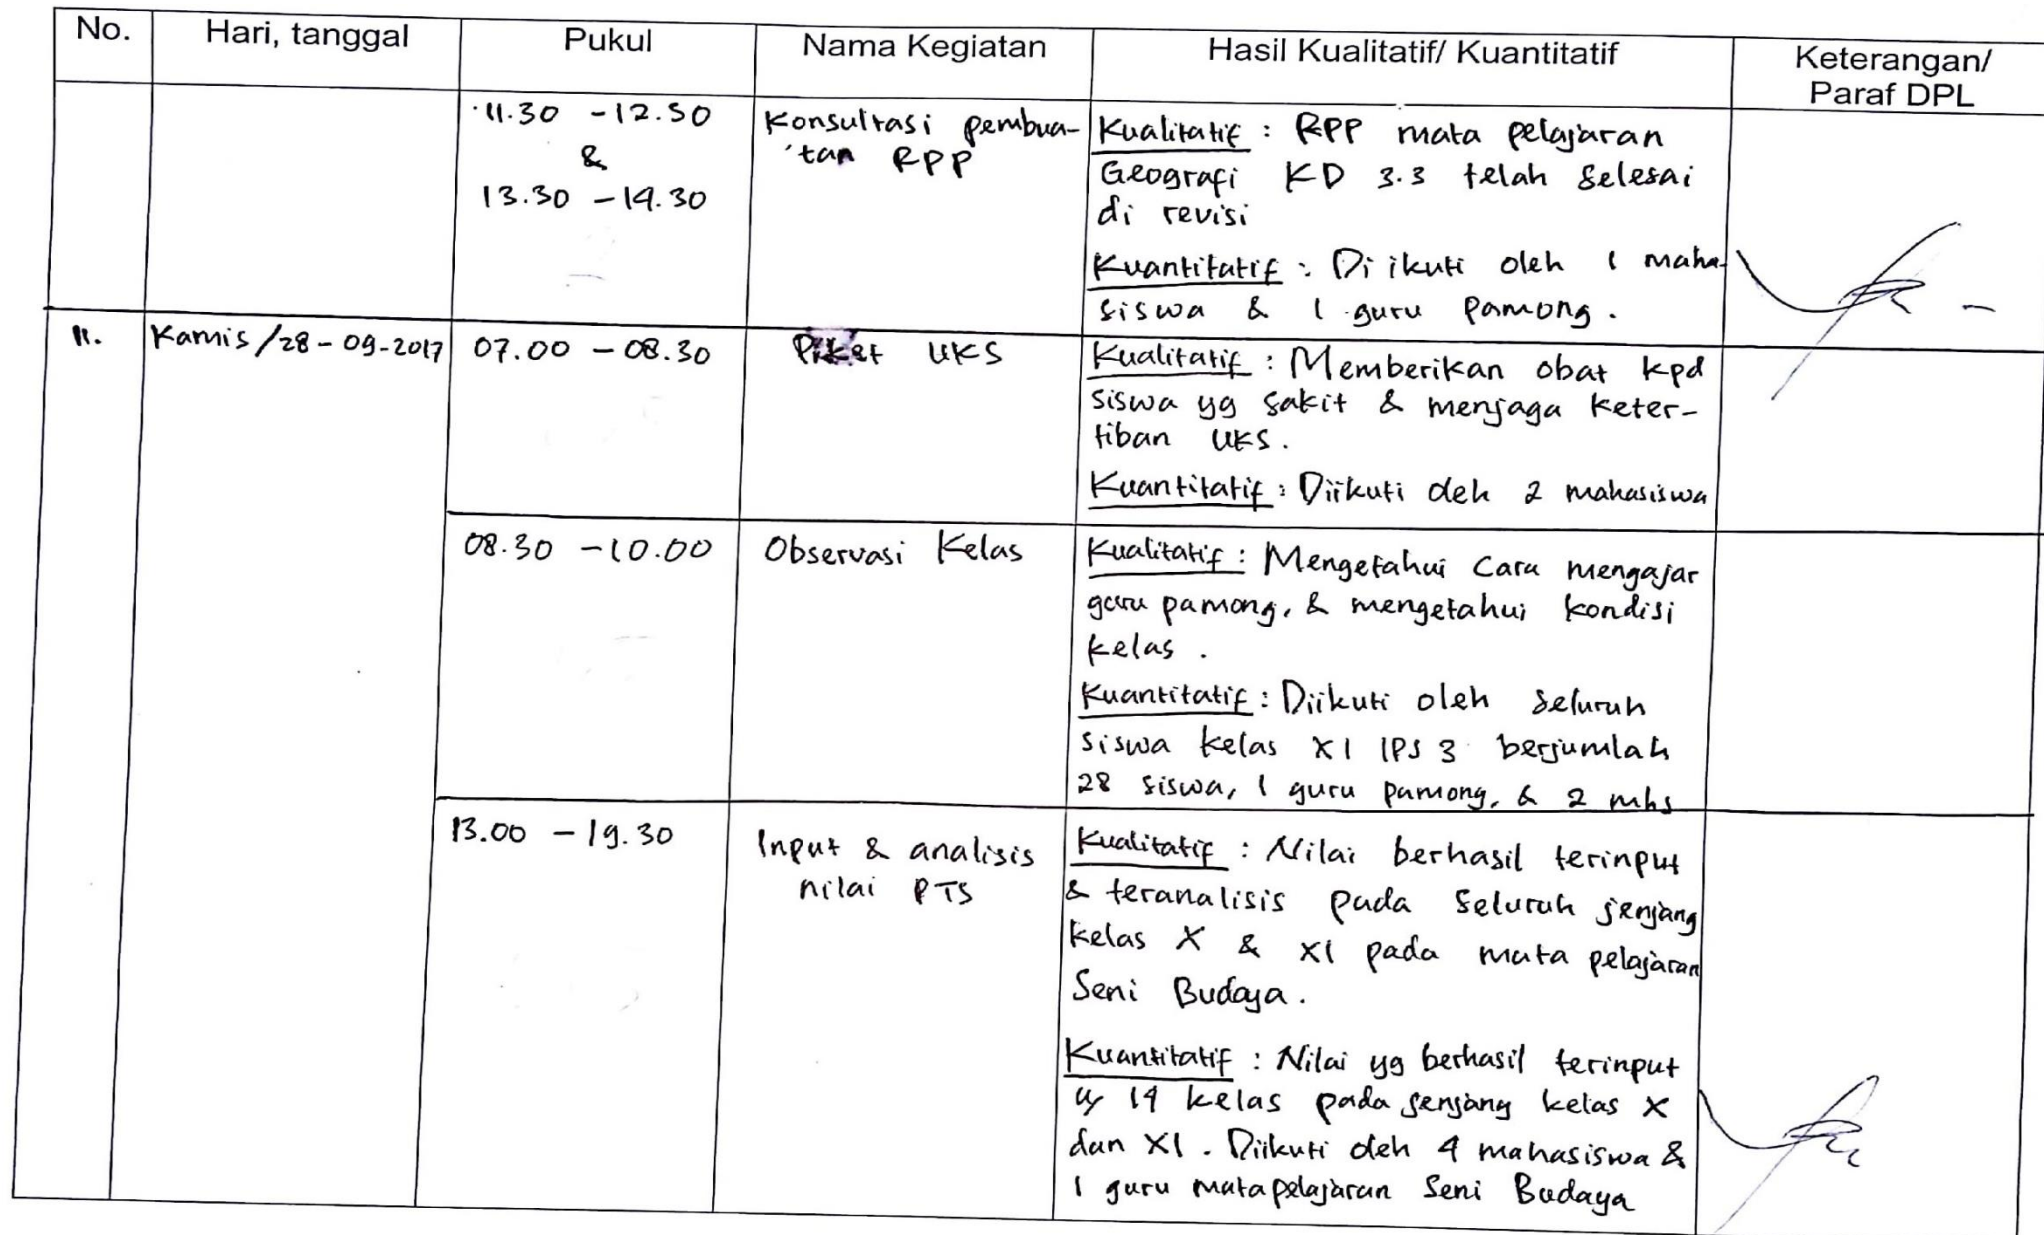 No. Hari, tanggal Pukul Nama Kegiatan Hasil Kualitatif/ Kuantitatif Keterangan/
Paraf DPL
11.30 - 12.50
&
13.30 - 14.30
Konsultasi pembua-
tan RPP
Kualitatif : RPP mata pelajaran
Geografi KD 3.3 telah selesai
di revisi
Kuantitatif : Di ikuti oleh 1 maha-
siswa & 1 guru Pamong.
11. Kamis /28-09-2017 07.00 - 08.30 Piket UKS
Kualitatif : Memberikan obat kpd
siswa yg sakit & menjaga keter-
tiban UKS.
Kuantitatif : Diikuti oleh 2 mahasiswa
08.30 - 10.00 Observasi Kelas
Kualitatif : Mengetahui cara mengajar
guru pamong, & mengetahui kondisi
kelas .
Kuantitatif : Diikuti oleh seluruh
siswa kelas XI IPS 3 berjumlah
28 siswa, 1 guru pamong, & 2 mhs
13.00 - 14.30 Input & analisis
nilai PTS
Kualitatif : Nilai berhasil terinput
& teranalisis pada seluruh jenjang
kelas X & XI pada mata pelajaran
Seni Budaya.
Kuantitatif : Nilai yg berhasil terinput
14 kelas pada jenjang kelas X
dan XI . Diikuti oleh 4 mahasiswa &
1 guru mata pelajaran Seni Budaya